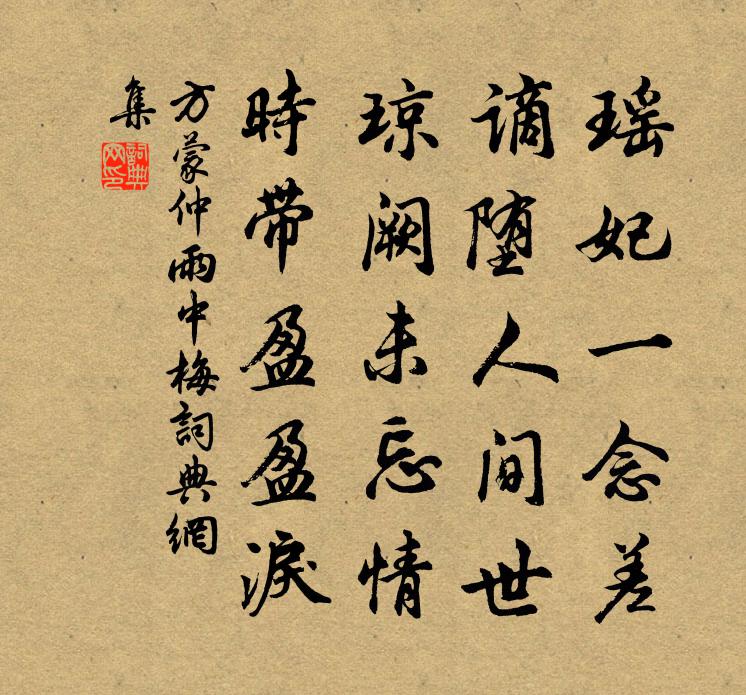 瑶妃一念差
谪堕人间世
琼阙未忘情
時带盈盈淚
方蒙仲雨中梅詞典網
集
詞典網印